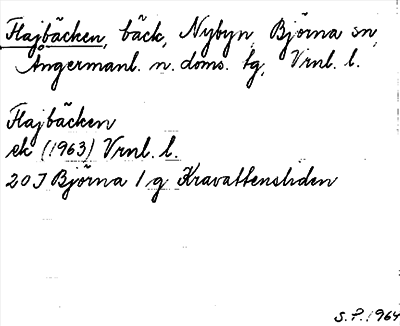 Flajbäcken, bäck, Nybyn, Björna sn,
Ångermanl. n. doms. tg, Vrnl. l.
Flajbäcken
ek (1963) Vrnl. l.
20 J Björna 1 g Kravattensliden
S.P. 1964